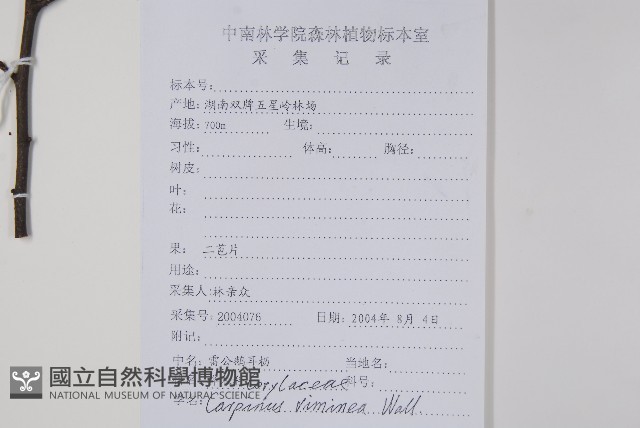 中南林学院森林植物标本室
采集记录
标本号:
产地: 湖南双牌五星岭林场
海拔: 700m 生境:
习性: 体高: 胸径:
树皮:
叶:
花:
果: 二苞片
用途:
采集人: 林亲众
采集号: 2004076 日期: 2004年 8月 4日
附记:
中名: 雷公鹅耳枥 当地名:
Corylaceae 科号:
学名: Carpinus viminea Wall.
國立自然科學博物館
NATIONAL MUSEUM OF NATURAL SCIENCE